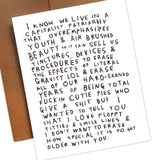 I KNOW WE LIVE IN A
CAPITALIST PATRIARCHY
THAT OVEREMPHASIZES
YOUTH & AIR BRUSHED
BEAUTY SO IT CAN SELL US
TINCTURES, DEVICES &
PROCEDURES TO ERASE
THE EFFECTS OF
GRAVITY LOL & LITERAL
ALL OF OUR HARD-EARNED
YEARS OF BEING TOTAL
FUCKIN CUTIE PIES WHO
GIVE A SHIT BUT I
WANTED TO TELL YOU
THAT I LOVE FLOPPY
TITTIES & SMILE LINES &
I DON'T WANT TO ERASE
HOW SPECIAL IT IS TO GET
OLDER WITH YOU.